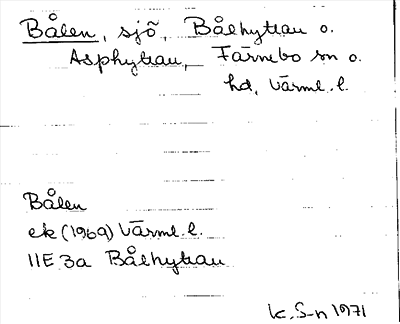 Bålen, sjö, Bålhyttan o.
Asphyttan, Färnebo sn o.
hd, Värml. l.
Bålen
ek (1969) Värml. l.
11E 3a Bålhyttan
K. S-n 1971